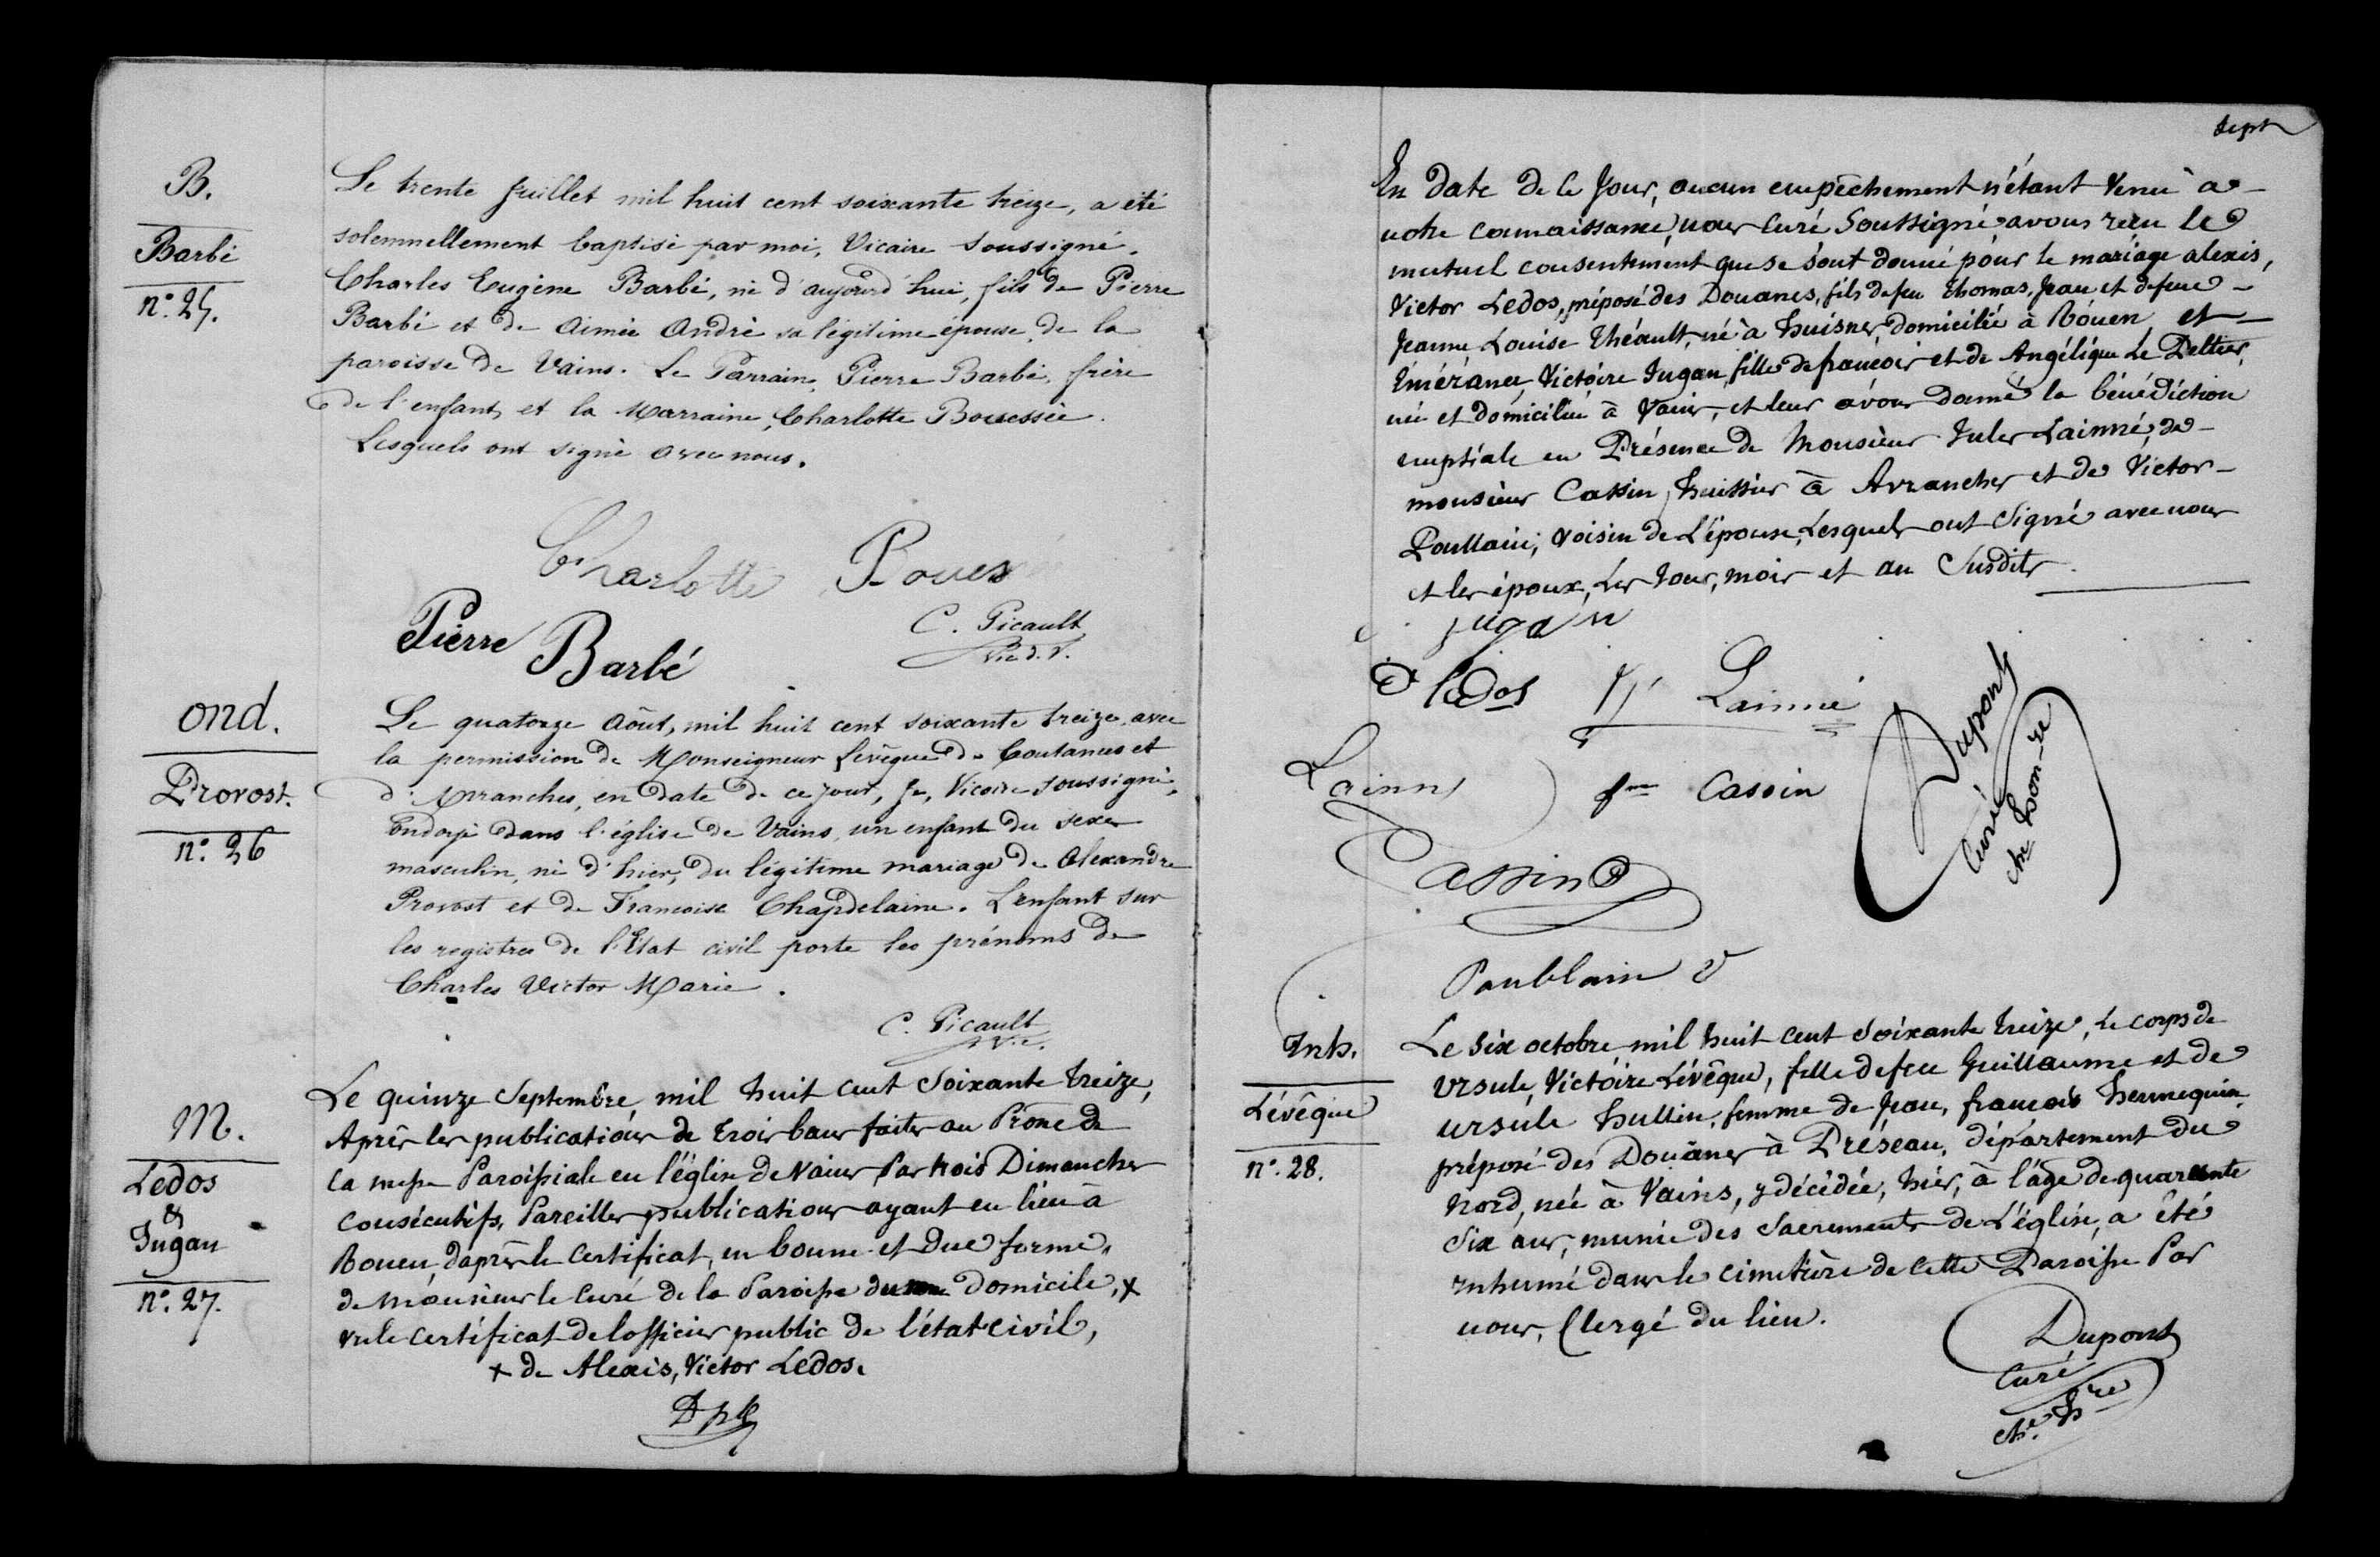 B.
Barbé
n°. 25.
Le trente Juillet mil huit cent soixante treize, a été
solemnellement baptisé par moi, Vicaire soussigné,
Charles Eugène Barbé, né d'aujourd'hui, fils de Pierre
Barbé et de Aimée André sa légitime épouse, de la
paroisse de Vains. Le Parrain, Pierre Barbé, frère
de l'enfant, et la Marraine, Charlotte Bouessée.
Lesquels ont signé avec nous.
Charlotte Boues
Pierre Barbé
C. Picault
Vic. d. V.
ond.
Provost.
n°. 26
Le quatorze Août, mil huit cent soixante treize, avec
la permission de Monseigneur l'évêque de Coutances et
d'Avranches, en date de ce jour, Je, Vicaire soussigné,
ondoyé dans l'église de Vains, un enfant du sexe
masculin, né d'hier, du légitime mariage de Alexandre
Provost et de Françoise Chapdelaine. L'enfant sur
les registres de l'État civil porte les prénoms de
Charles Victor Marie.
C. Picault
Vic.
M.
Ledos
&
Jugan
n°. 27.
Le quinze Septembre, mil huit cent Soixante treize,
Après les publications de trois bans faites au Prône de
la messe Paroissiale en l'église de Vains Par trois Dimanches
consécutifs, Pareilles publications ayant eu lieu à
Rouen, d'après le Certificat, en bonne et Due forme,
de Monsieur le Curé de la Paroisse du domicile, x
vu le certificat de l'officier public de l'état civil,
x de Alexis, Victor Ledos.
Dpt
sept
En Date de ce Jour, aucun empêchement n'étant Venu à
notre connaissance, nous Curé Soussigné avons reçu le
mutuel consentement que se sont donné pour le mariage alexis,
Victor Ledos, préposé des Douanes, fils de feu Thomas, Jean et de feue
Jeanne Louise Théault, né à huisnes, domicilié à Rouen, et
Émérance Victoire Jugan, fille de françois et de Angélique Le Peltier,
née et domiciliée à Vains, et leur avons donné la bénédiction
nuptiale en Présence de Monsieur Jules Lainné, de
monsieur Cassin, huissier à Avranches et de Victor
Poullain, voisin de l'épouse, Lesquels ont Signé avec nous
et les époux, Les Jour, mois et an Susdits.
e. jugan
ledos
Lainné
Lainné
fme Cassin
Cassin
Dupont
Curé
che hon-re
Poublain V
Inh.
Lévêque
n°. 28.
Le Six octobre mil huit cent Soixante treize, Le corps de
Ursule, Victoire Lévêque, fille de feu Guillaume et de
ursule hullin, femme de Jean, françois hennequin,
préposé des Douanes à Préseau, département du
Nord, née à Vains, y décédée, hier, à l'âge de quarante
Six ans, munie des Sacrements de l'église, a été
inhumé dans le cimetière de Cette Paroisse Par
nous, Clergé du lieu.
Dupont
Curé
che. hre